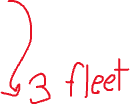 3 fleet